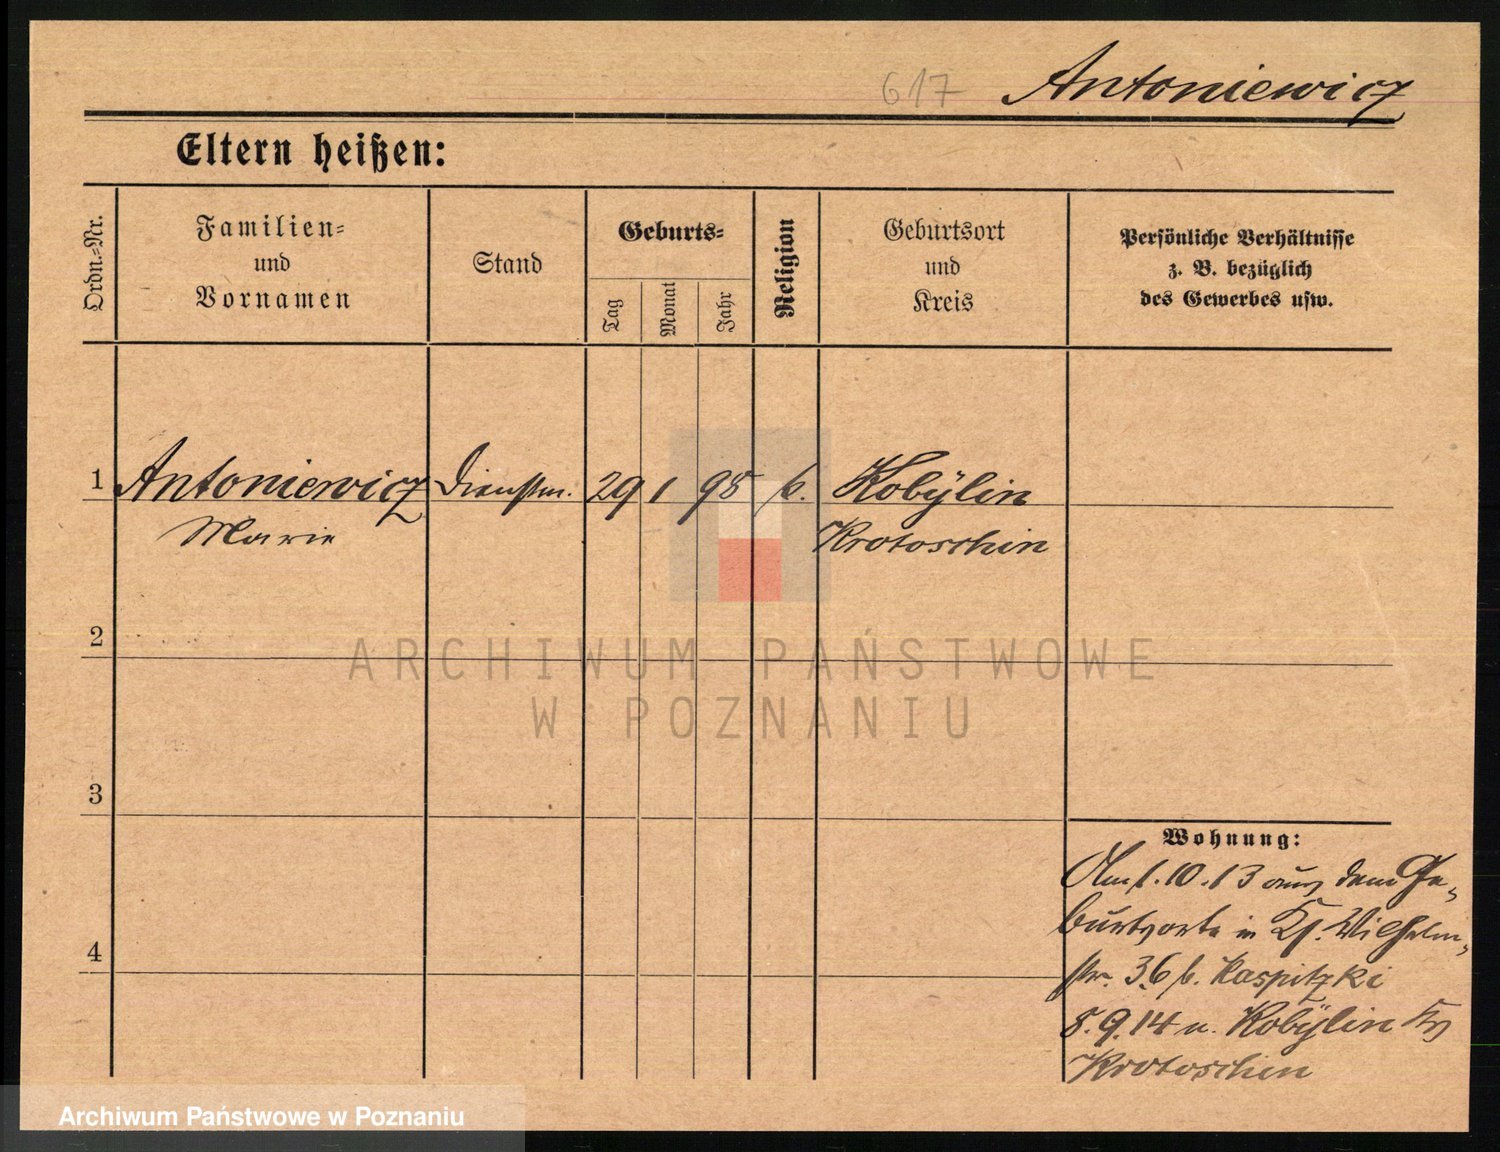 617 Antoniewicz
Eltern heißen:
Ordn.=Nr.
Familien=
und
Vornamen
Stand
Geburts=
Tag
Monat
Jahr
Religion
Geburtsort
und
Kreis
Persönliche Verhältnisse
z. B. bezüglich
des Gewerbes usw.
1 Antoniewicz Dienstm. 29 1 98 k. Kobÿlin
Marie Krotoschin
2
3
4
Wohnung:
Am 1.10.13 aus dem Ge-
burtsorte in Wilhelm-
str. 36 b. Kaspitzki
8.9.14 n. Kobÿlin Ks
Krotoschin
ARCHIWUM PAŃSTWOWE
W POZNANIU
Archiwum Państwowe w Poznaniu